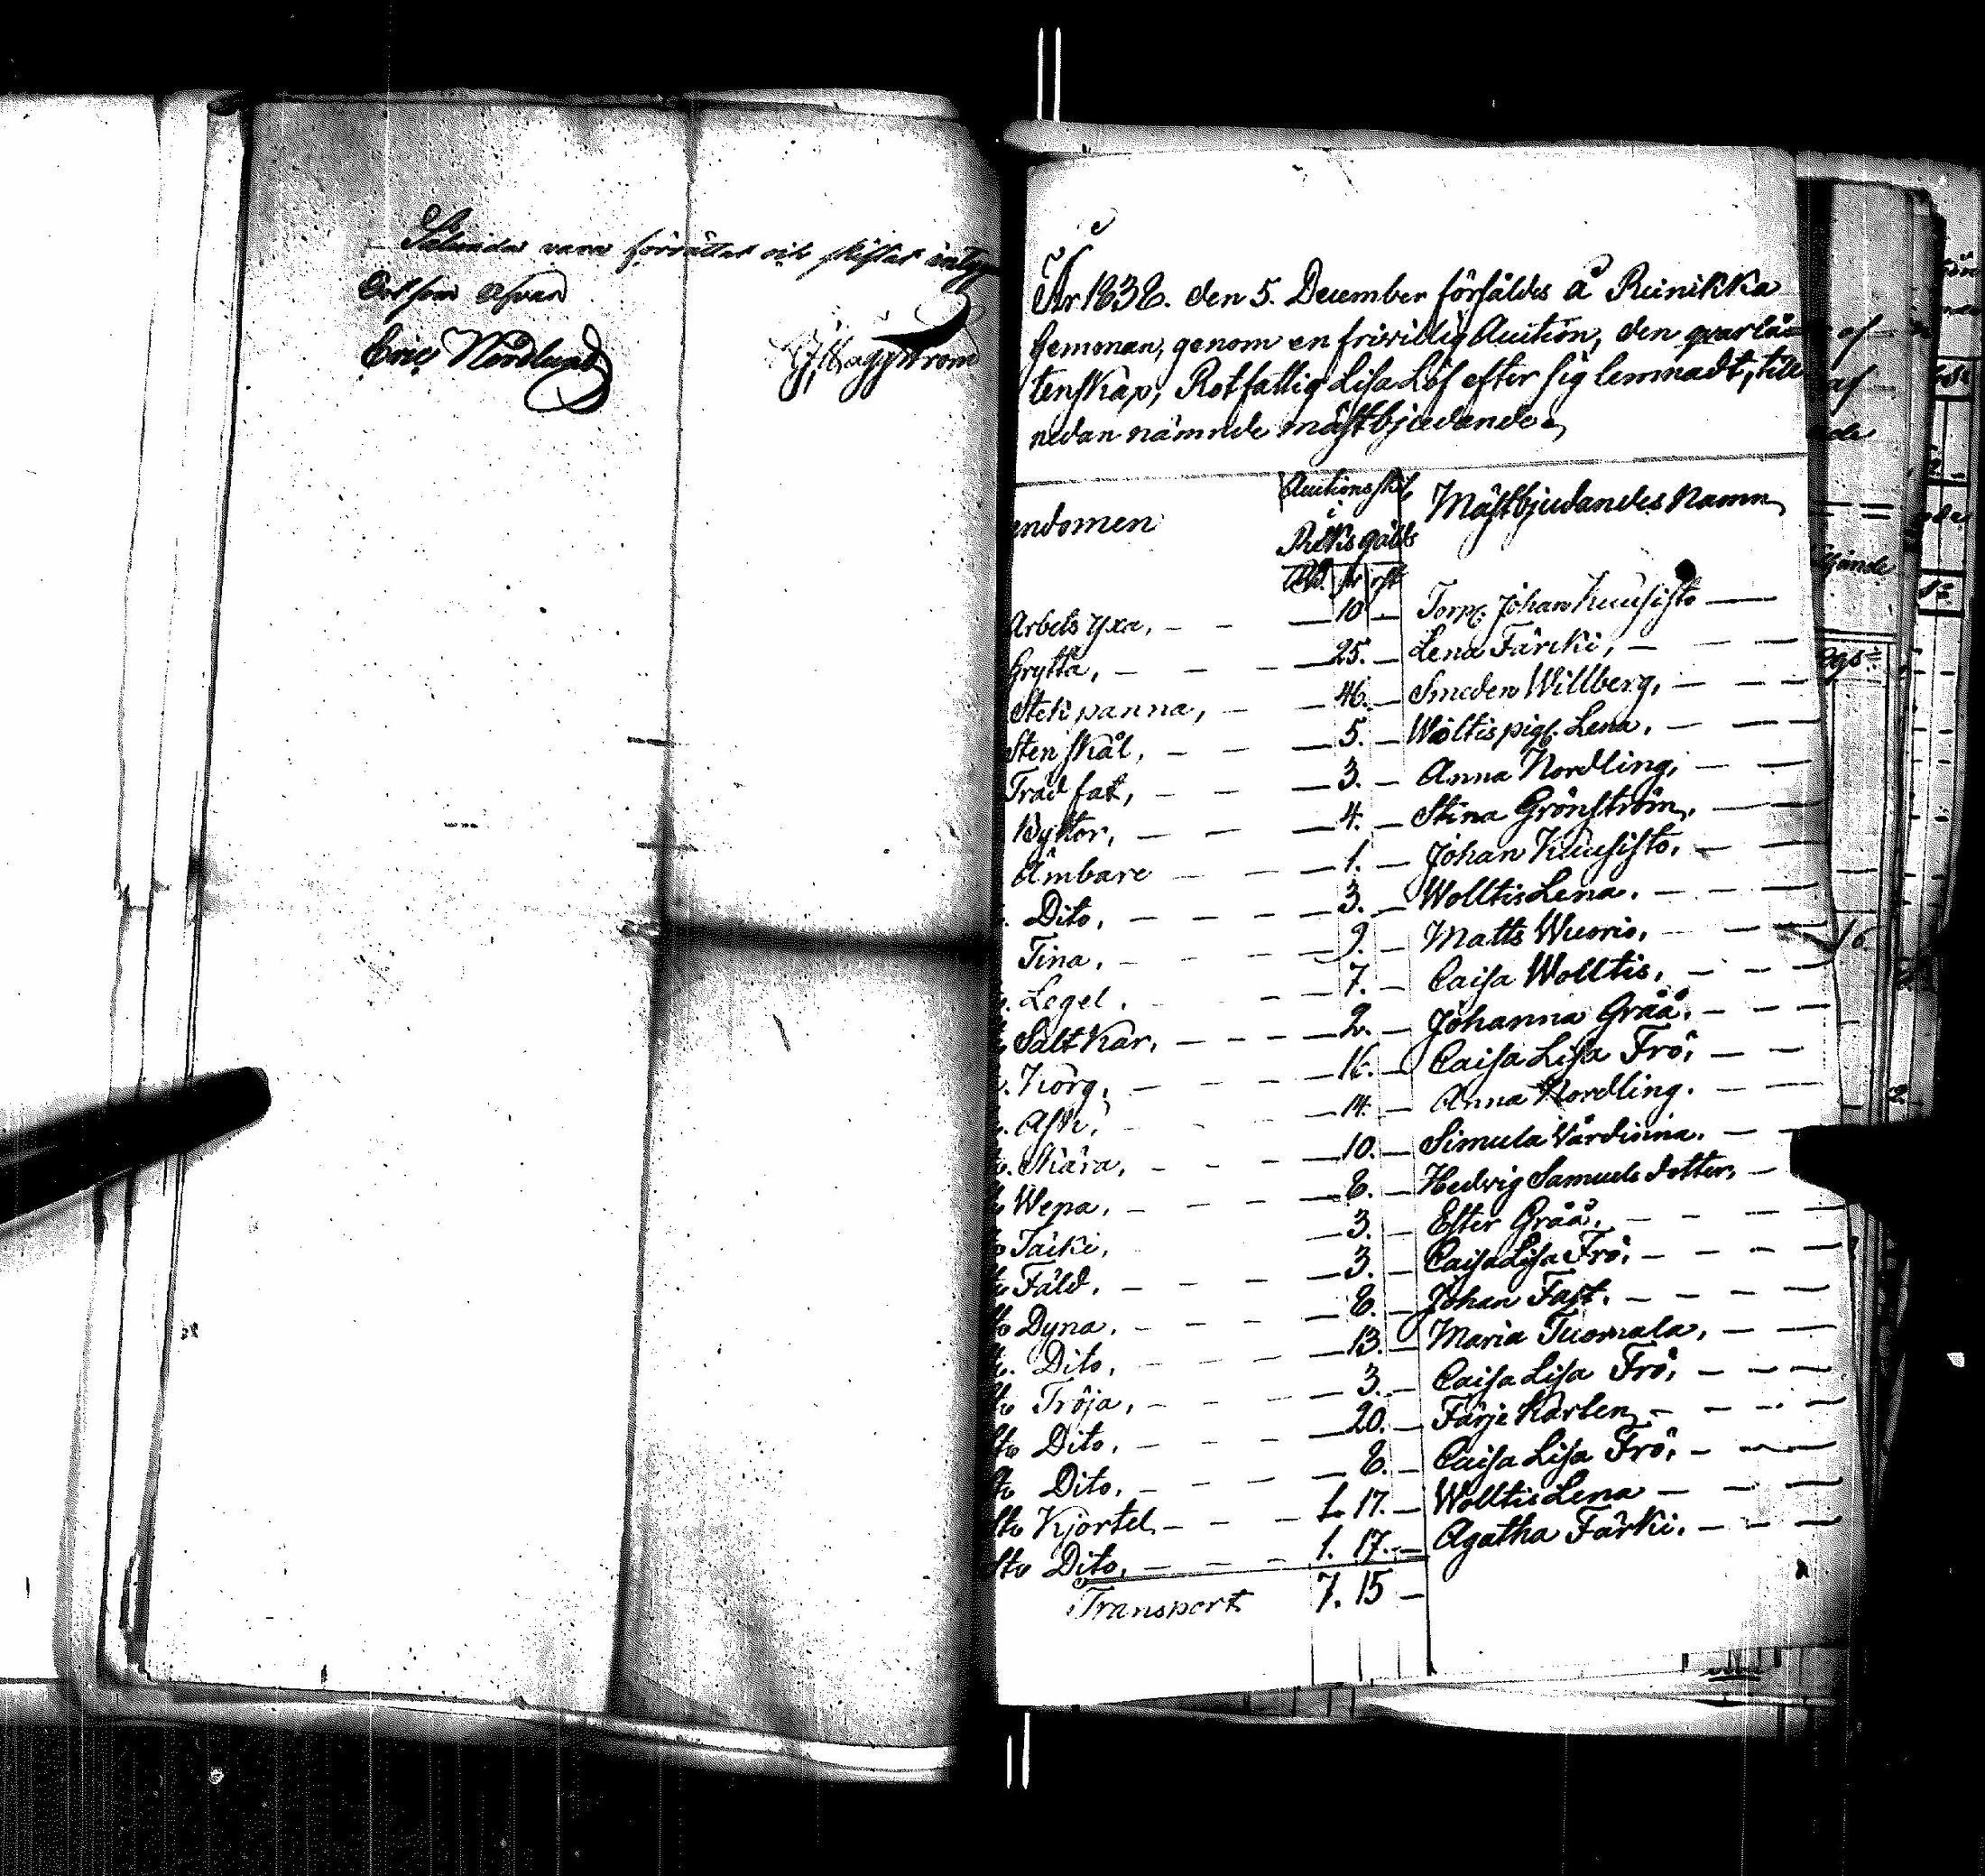 Således vara förrättat och skiftat intyga
Ort som ofvan
Eric Nordlund
CJ Häggström
År 1838. den 5. December försåldes å Reinikka
hemman, genom en friwillig Auction, den qvarlå-
tenskap, Rotfattig Lisa Löf efter sig lemnadt, till
nedan nämnde mästbjudande,
endomen
Auctions skil. i Riksgälds
Mästbjudandes Namn
Rd. sk. rst
Arbets yxa, — 10 — Torp. Johan Kuusisto
Grytta, — 25. — Lena Färiki,
Stek panna, — 46. — Smeden Willberg,
Sten skål, — 5. — Wóltis pig. Lena.
Träd fat, — 3. — Anna Nordling,
Byttor, — 4. — Stina Grönström,
Ämbare — 1. — Johan Kuusisto,
Dito, — 3. — Wolltis Lena.
Tina, — 9. — Matts Wuorio,
Legel. — 7. — Caisa Wolltis,
Salt Kar, — 2. — Johanna Gråå.
Korg, — 16. — Caisa Lisa Frö,
Ask, — 14. — Anna Nordling.
Skära, — 10. — Simula Värdinna.
Wepa, — 8. — Hedvig Samuels dotter,
Täcki, — 3. — Ester Gråå,
Fäld, — 3. — Caisa Lisa Frö,
Dyna, — 8. — Johan Fast.
Dito, — 13. — Maria Tuomala,
Tröja, — 3. — Caisa Lisa Frö,
Dito, — 20. — Färje Karlen,
Dito, — 8. — Caisa Lisa Frö,
Kjortel — 1. 17. — Wolltis Lena
Dito, — 1. 17. — Agatha Färki.
Transport 7. 15 —